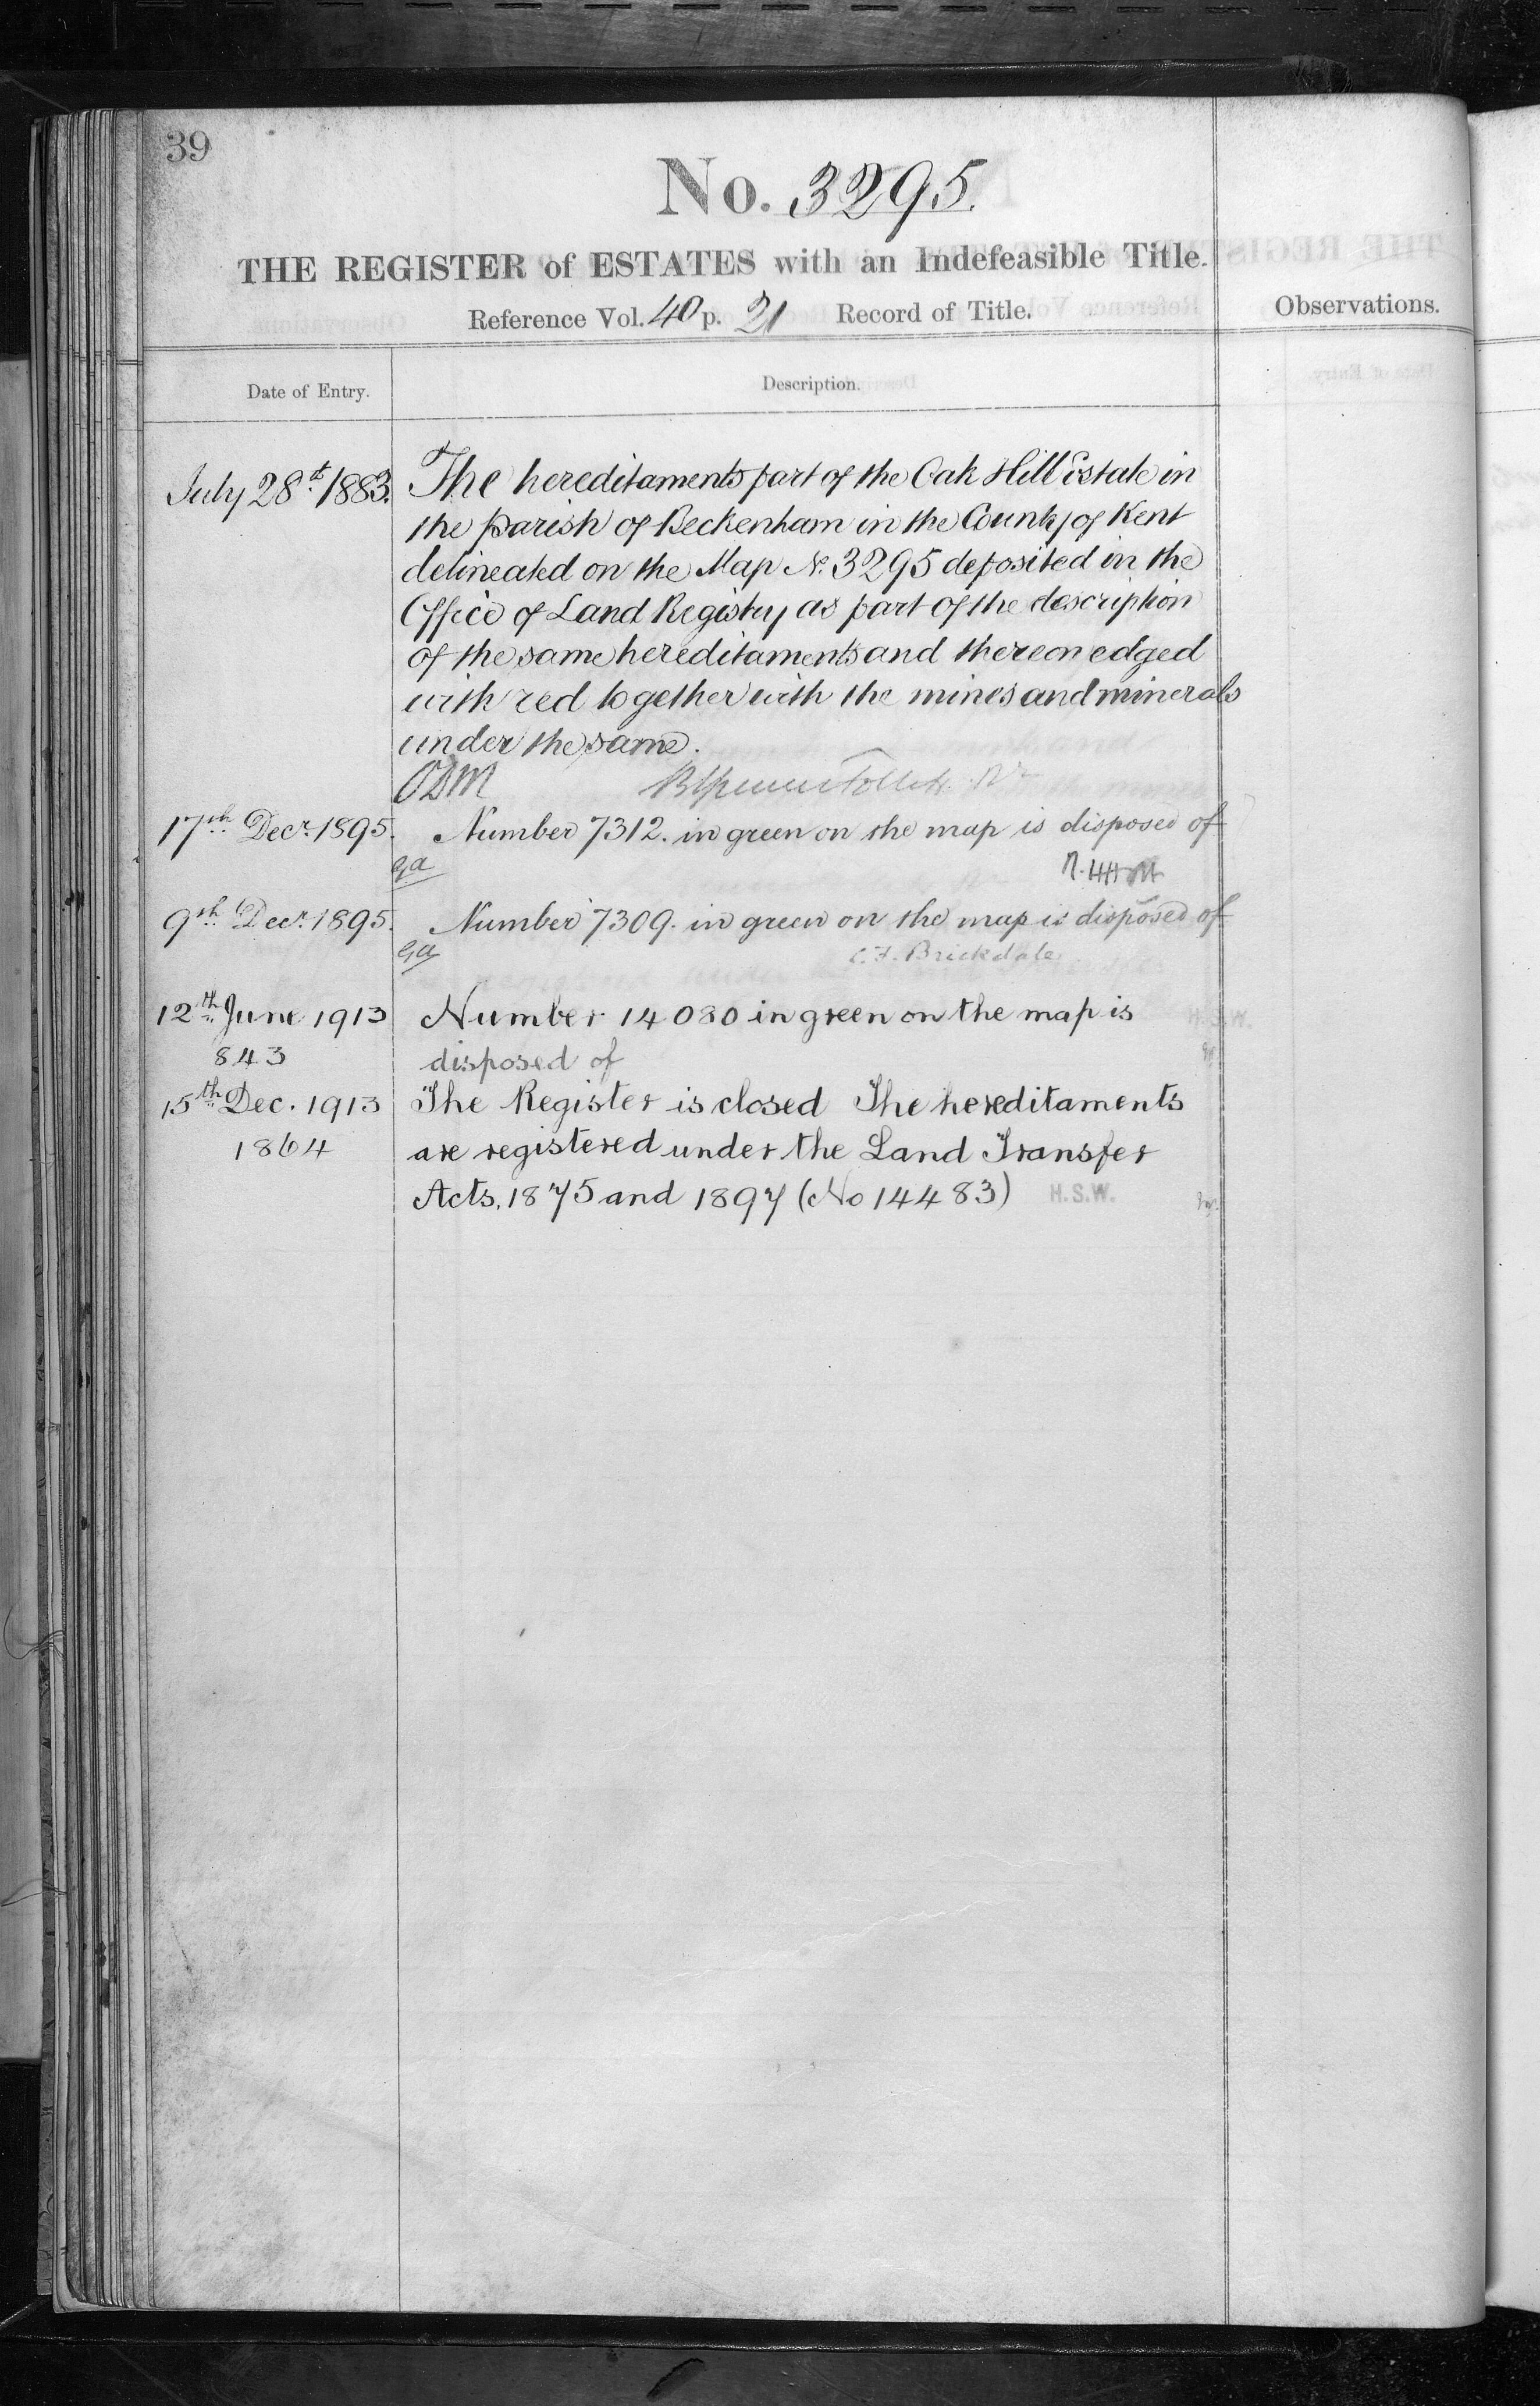 39
No. 3295.
THE REGISTER of ESTATES with an Indefeasible Title.
Reference Vol. 40 p. 21 Record of Title.
Observations.
Date of Entry.
Description.
July 28th 1883.
The hereditaments part of the Oak Hill Estate in
the parish of Beckenham in the County of Kent
delineated on the Map No. 3295 deposited in the
Office of Land Registry as part of the description
of the same hereditaments and thereon edged
with red together with the mines and minerals
under the same.
17th Decr. 1895. Number 7312. in green on the map is disposed of
9th Decr. 1895. Number 7309. in green on the map is disposed of
C.F. Brickdale
12th June 1913 Number 14080 in green on the map is H.S.W.
843 disposed of
15th Dec. 1913 The Register is closed The hereditaments
1864 are registered under the Land Transfer
Acts, 1875 and 1897 (No 14483) H.S.W.